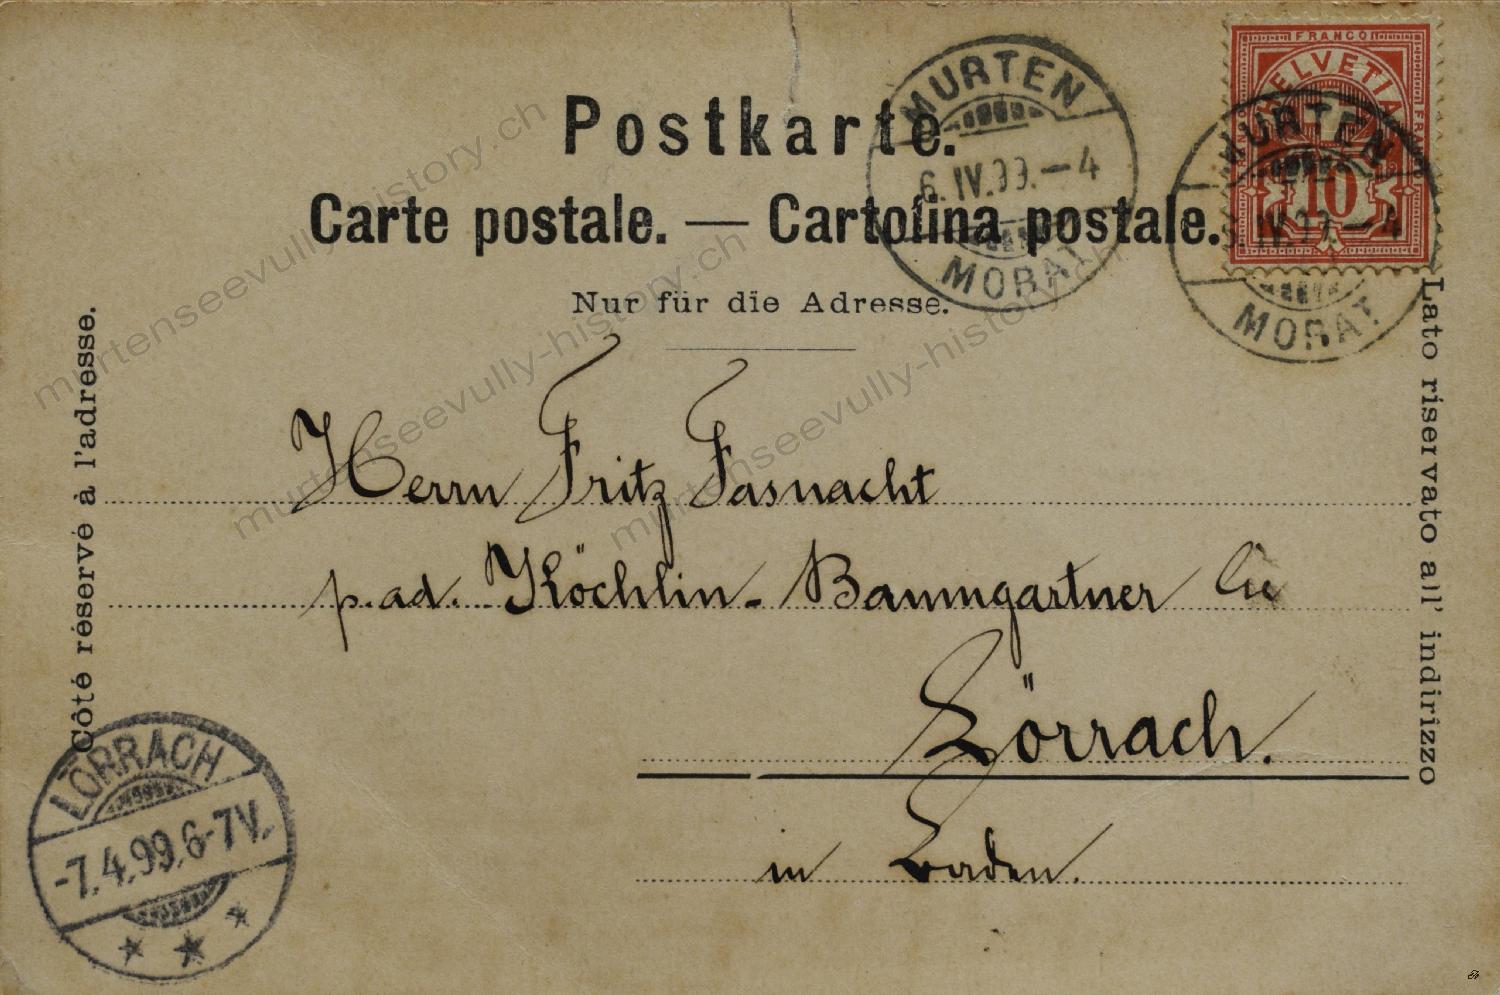 Postkarte.
Carte postale. — Cartolina postale.
Nur für die Adresse.
Côté réservé à l'adresse.
Lato riservato all' indirizzo
FRANCO
HELVETIA
10
MURTEN
6.IV.99.—4
MORAT
MURTEN
IV.99.—4
MORAT
Herrn Fritz Fasnacht
p. ad. Köchlin-Baumgartner Cie
Lörrach.
in Baden.
LÖRRACH
-7.4.99.6-7V.
murtenseevully-history.ch
murtenseevully-history.ch
murtenseevully-history.ch